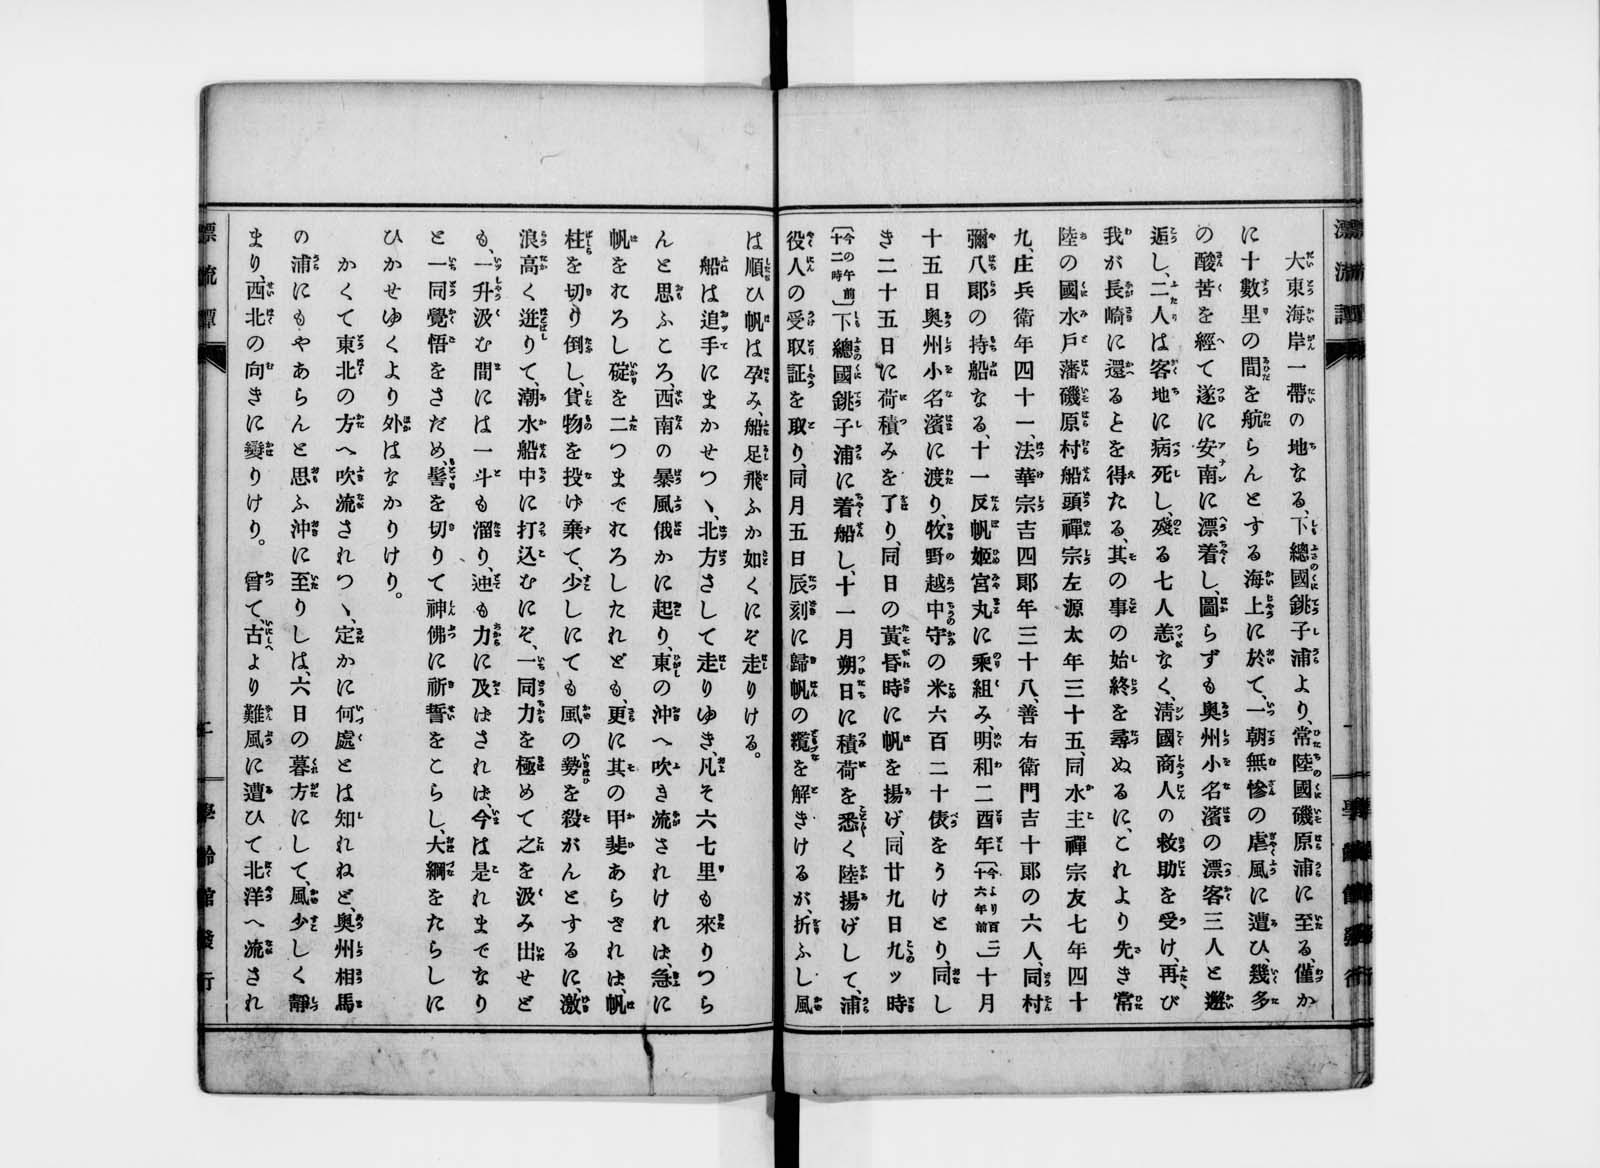 漂流譚
一
學齡館發行
大東海岸一帶の地なる、下總國銚子浦より、常陸國磯原浦に至る、僅か
に十數里の間を航らんとする海上に於て、一朝無慘の虐風に遭ひ、幾多
の酸苦を經て遂に安南に漂着し、圖らずも奥州小名濱の漂客三人と邂
逅し、二人は客地に病死し、殘る七人恙なく、淸國商人の救助を受け、再び
我が長崎に還るとを得たる、其の事の始終を尋ぬるに、これより先き常
陸の國水戸藩磯原村船頭禪宗左源太年三十五、同水主禪宗友七年四十
九、庄兵衛年四十一、法華宗吉四郞年三十八、善右衛門吉十郞の六人、同村
彌八郞の持船なる、十一反帆姬宮丸に乘組み、明和二酉年〔今より百二十六年前〕十月
十五日奥州小名濱に渡り、牧野越中守の米六百二十俵をうけとり、同し
き二十五日に荷積みを了り、同日の黃昏時に帆を揚げ、同廿九日九ッ時
〔今の午前十二時〕下總國銚子浦に着船し、十一月朔日に積荷を悉く陸揚げして、浦
役人の受取証を取り、同月五日辰刻に歸帆の纜を解きけるが、折ふし風
は順ひ帆は孕み、船足飛ふか如くにぞ走りける。
船は追手にまかせつゝ、北方さして走りゆき、凡そ六七里も來りつら
んと思ふころ、西南の暴風俄かに起り、東の沖へ吹き流されけれは、急に
帆をれろし碇を二つまでれろしたれども、更に其の甲斐あらされは、帆
柱を切り倒し、貨物を投け棄て、少しにても風の勢を殺がんとするに、激
浪高く迸りて、潮水船中に打込むにぞ、一同力を極めて之を汲み出せど
も、一升汲む間には一斗も溜り、迚も力に及はされは、今は是れまでなり
と一同覺悟をさだめ、髻を切りて神佛に祈誓をこらし、大綱をたらしに
ひかせゆくより外はなかりけり。
かくて東北の方へ吹流されつゝ、定かに何處とは知れねど、奥州相馬
の浦にもやあらんと思ふ沖に至りしは、六日の暮方にして、風少しく靜
まり、西北の向きに變りけり。曾て、古より難風に遭ひて北洋へ流され
漂流譚
二
學齡館發行